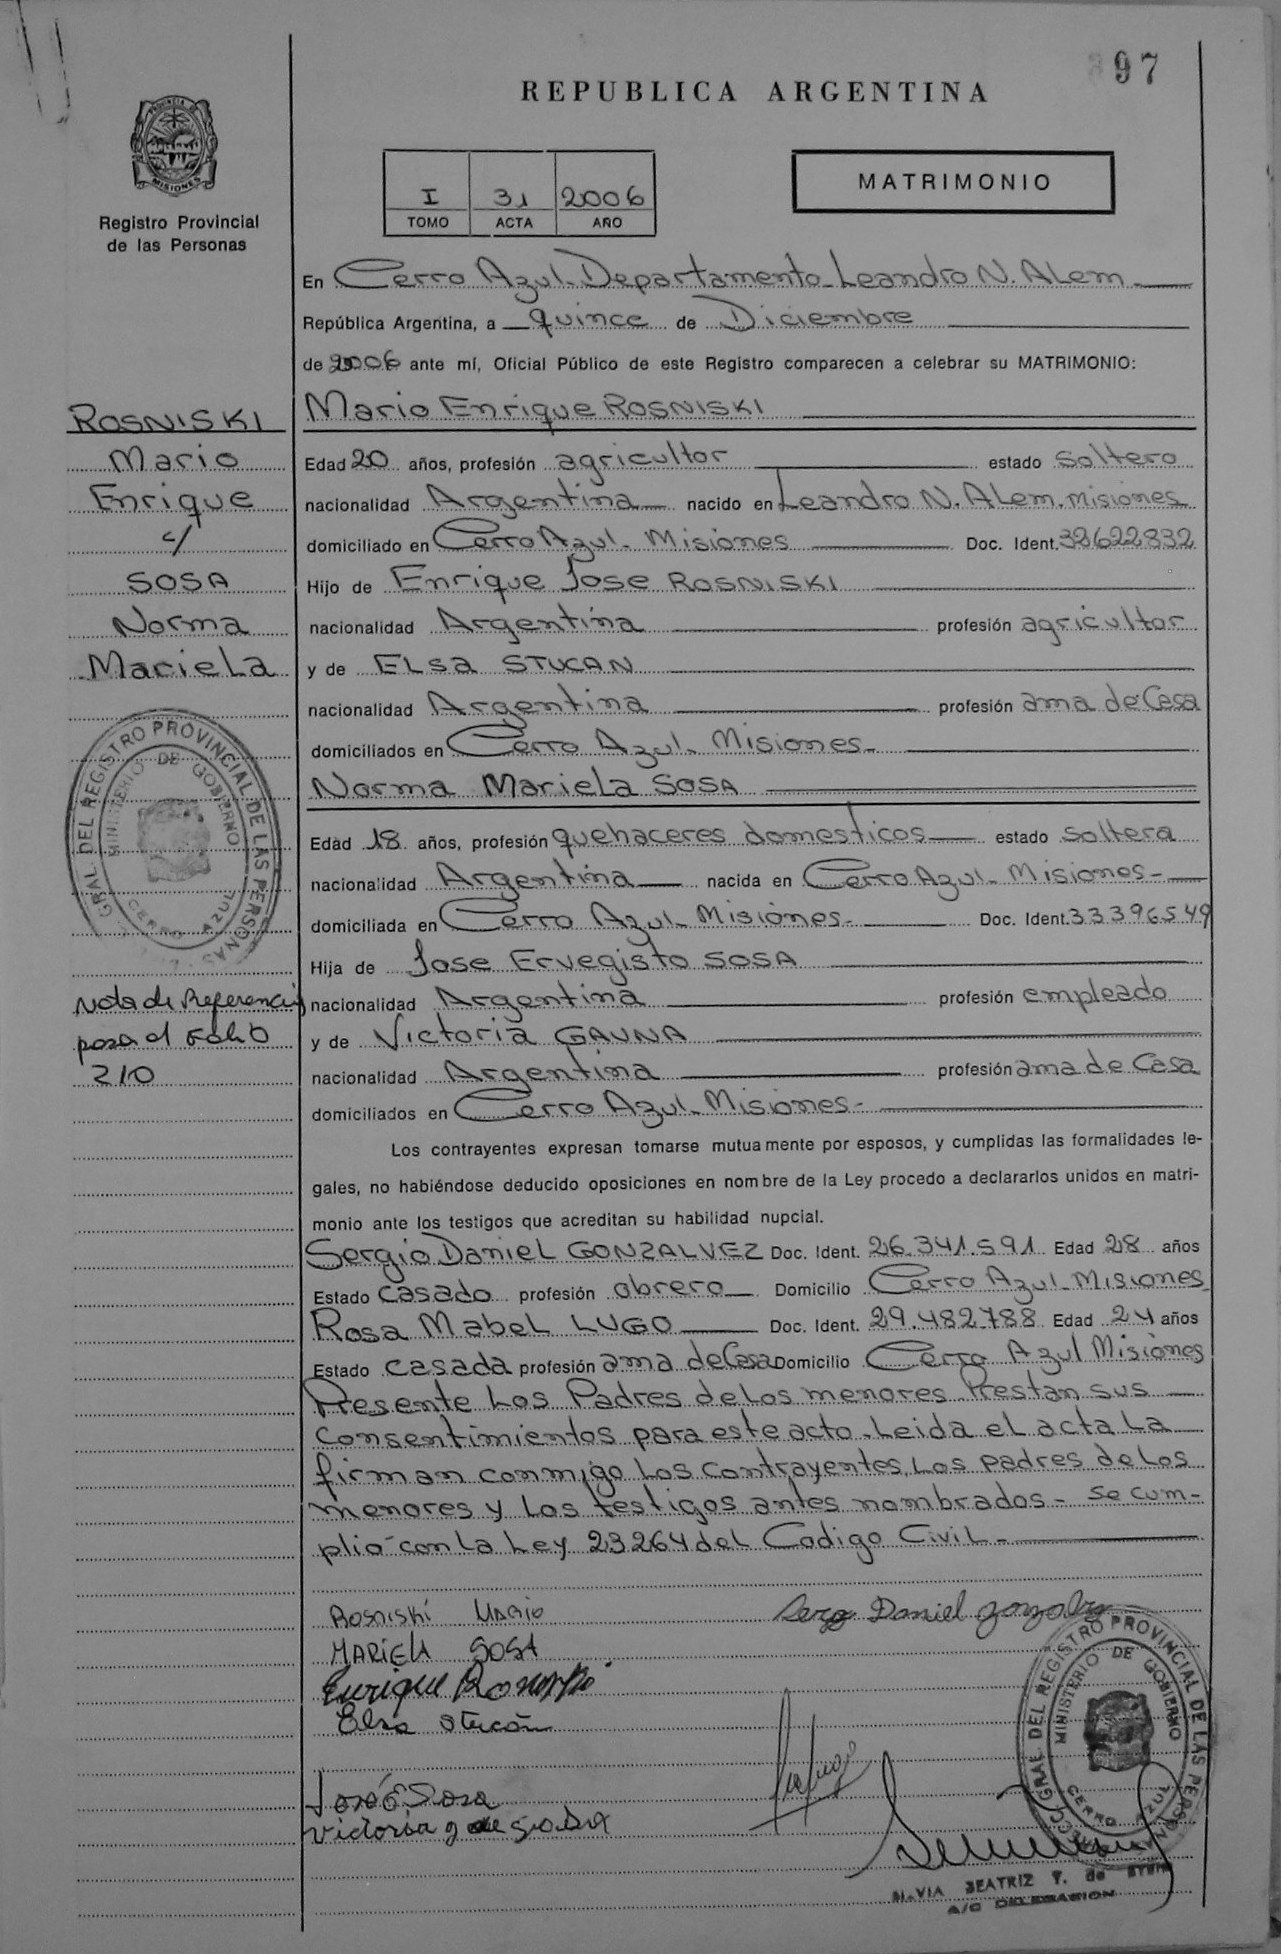 97
REPUBLICA ARGENTINA
MISIONES
Registro Provincial
de las Personas
I 31 2006
TOMO ACTA AÑO
MATRIMONIO
En Cerro Azul. Departamento Leandro N. ALem.
República Argentina, a quince de Diciembre
de 2006 ante mí, Oficial Público de este Registro comparecen a celebrar su MATRIMONIO:
Mario Enrique ROSNISKI
ROSNISKI
Mario
Enrique
c/
SOSA
Norma
MarieLa
Edad 20 años, profesión agricultor estado soltero
nacionalidad Argentina nacido en Leandro N. ALem. Misiones
domiciliado en Cerro Azul - Misiones Doc. Ident. 32622832
Hijo de Enrique Jose ROSNISKI
nacionalidad Argentina profesión agricultor
y de ELsa STUCAN
nacionalidad Argentina profesión ama de Casa
domiciliados en Cerro Azul - Misiones -
Norma MarieLa SOSA
Edad 18 años, profesión quehaceres domesticos estado soltera
nacionalidad Argentina nacida en Cerro Azul - Misiones -
domiciliada en Cerro Azul - Misiones - Doc. Ident. 33396549
Hija de Jose Ervegisto SOSA
nacionalidad Argentina profesión empleado
y de Victoria GAUNA
nacionalidad Argentina profesión ama de Casa
domiciliados en Cerro Azul - Misiones -
GRAL DEL REGISTRO PROVINCIAL DE LAS PERSONAS
MINISTERIO DE GOBIERNO
CERRO AZUL
Nota de Referencia
pasa al Folio
210
Los contrayentes expresan tomarse mutuamente por esposos, y cumplidas las formalidades le-
gales, no habiéndose deducido oposiciones en nombre de la Ley procedo a declararlos unidos en matri-
monio ante los testigos que acreditan su habilidad nupcial.
Sergio Daniel GONZALVEZ Doc. Ident. 26.341.591 Edad 28 años
Estado casado profesión obrero Domicilio Cerro Azul - Misiones
Rosa MabeL LUGO Doc. Ident. 29.482.788 Edad 24 años
Estado casada profesión ama de Casa Domicilio Cerro Azul Misiones
Presente Los Padres de Los menores Prestan sus
consentimientos para este acto. Leida el acta La
firman conmigo Los contrayentes, Los padres de Los
menores y Los testigos antes nombrados - se cum-
plio con La Ley 23264 del Codigo CiviL -
Rosniski Mario
Daniel
MARIELA SOSA
Enrique
Elsa Stucan
José E Sosa
Victoria g de SOSA
GRAL DEL REGISTRO PROVINCIAL DE LAS PERSONAS
MINISTERIO DE GOBIERNO
CERRO AZUL
SILVIA BEATRIZ T. de
A/C DELEGACION